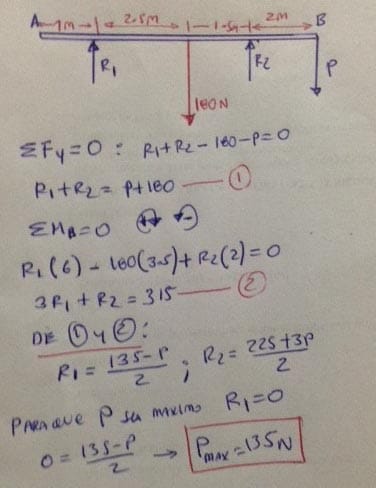 A 1M 2.5M 1.5M 2M B
R1 R2 P
180N
ΣFy=0 : R1+R2-180-P=0
R1+R2=P+180 —— ①
ΣMB=0
R1(6)-180(3.5)+R2(2)=0
3R1+R2=315 —— ②
DE ① y ②:
R1=(135-P)/2 ; R2=(225+3P)/2
PARA QUE P sea maximo R1=0
0=(135-P)/2 → Pmax=135N